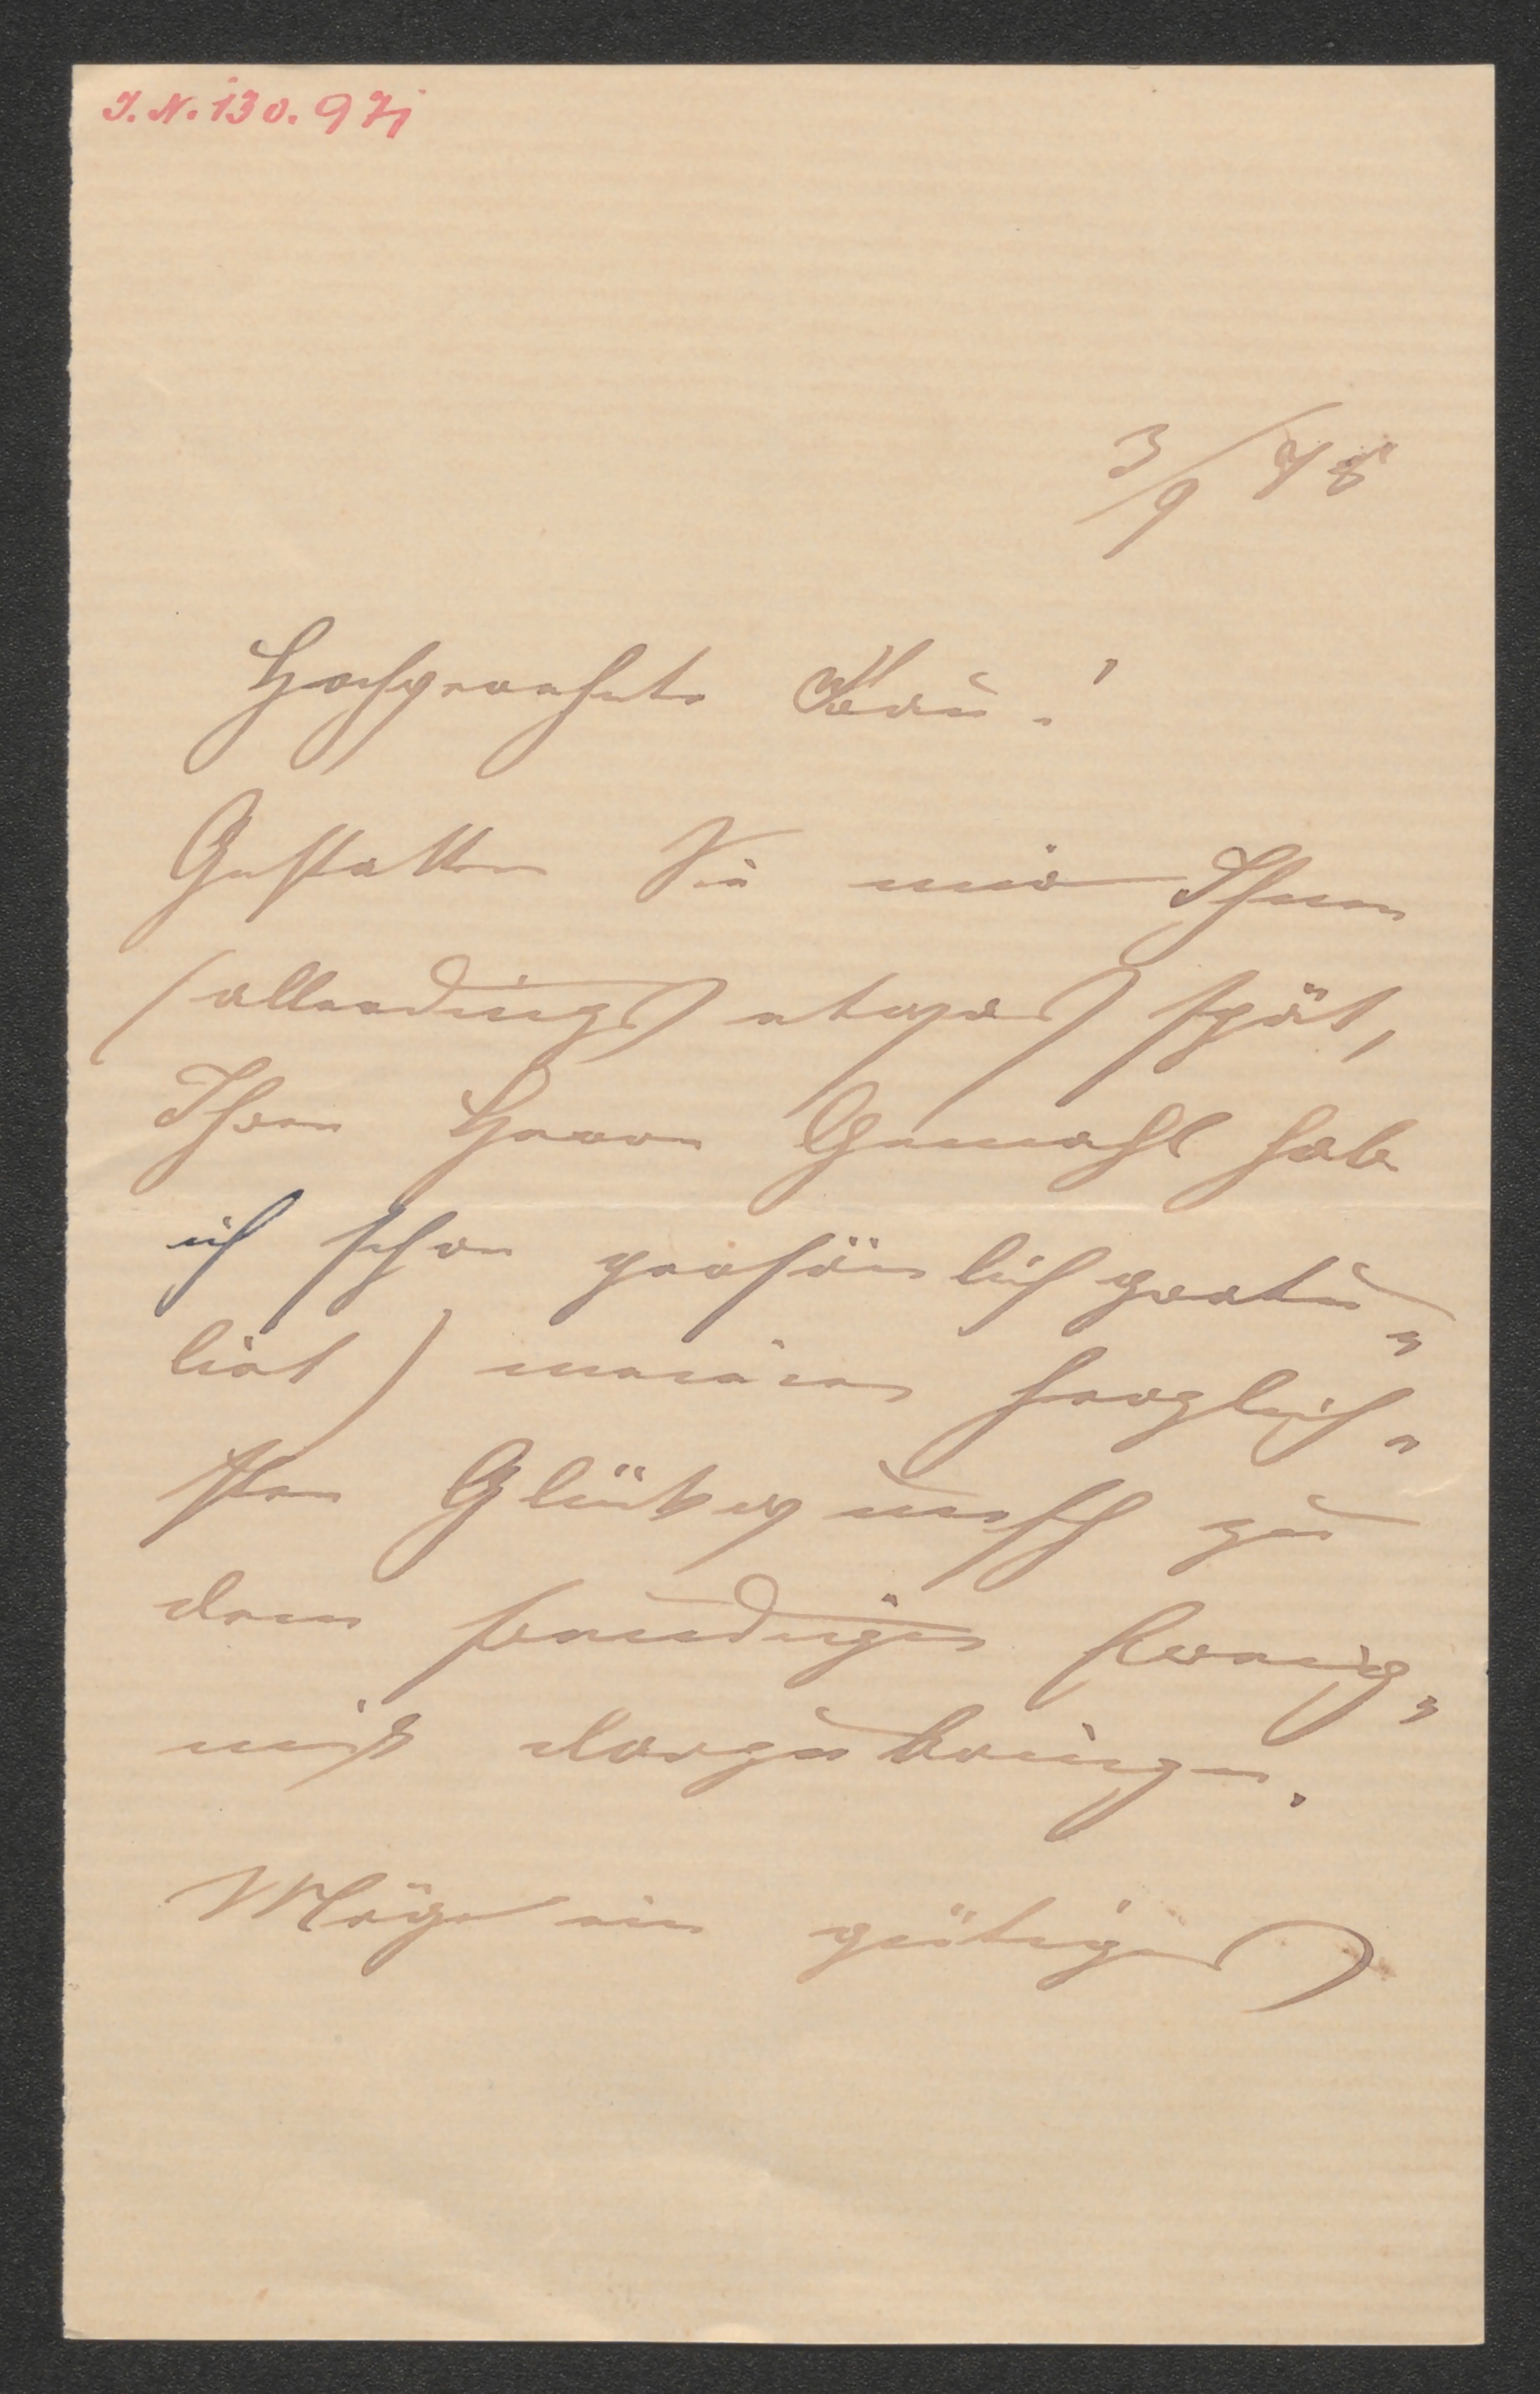 J. N. 130.971
3/9 78
Hochgeehrte Frau!
Gestatten Sie mir Ihnen
(allerdings etwas spät,
Ihrem Herrn Gemahl hab
ich schon persönlich gratu„
lirt) meinen herzlich„
sten Glückwunsch zu
dem freudigen Ereig„
niß darzubringen.
Möge ein gütiges